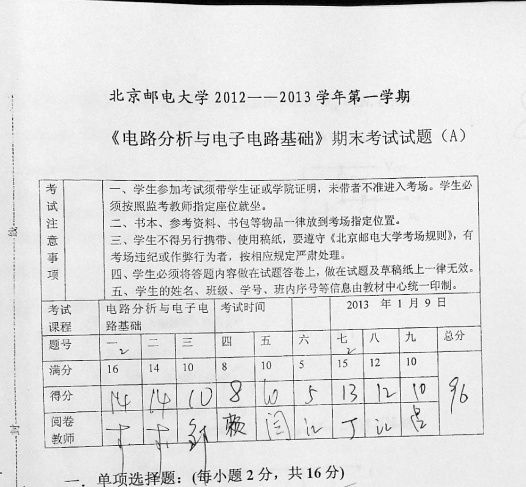 北京邮电大学2012——2013学年第一学期
《电路分析与电子电路基础》期末考试试题（A）
考试注意事项
一、学生参加考试须带学生证或学院证明，未带者不准进入考场。学生必
须按照监考教师指定座位就坐。
二、书本、参考资料、书包等物品一律放到考场指定位置。
三、学生不得另行携带、使用稿纸，要遵守《北京邮电大学考场规则》，有
考场违纪或作弊行为者，按相应规定严肃处理。
四、学生必须将答题内容做在试题答卷上，做在试题及草稿纸上一律无效。
五、学生的姓名、班级、学号、班内序号等信息由教材中心统一印制。
考试 电路分析与电子电 考试时间 2013 年 1 月 9 日
课程 路基础
题号 一 二 三 四 五 六 七 八 九 总分
2 2
满分 16 14 10 8 10 5 15 12 10
得分 14 14 10 8 10 5 13 12 10 96
阅卷
教师
一．单项选择题：(每小题 2 分，共 16 分)